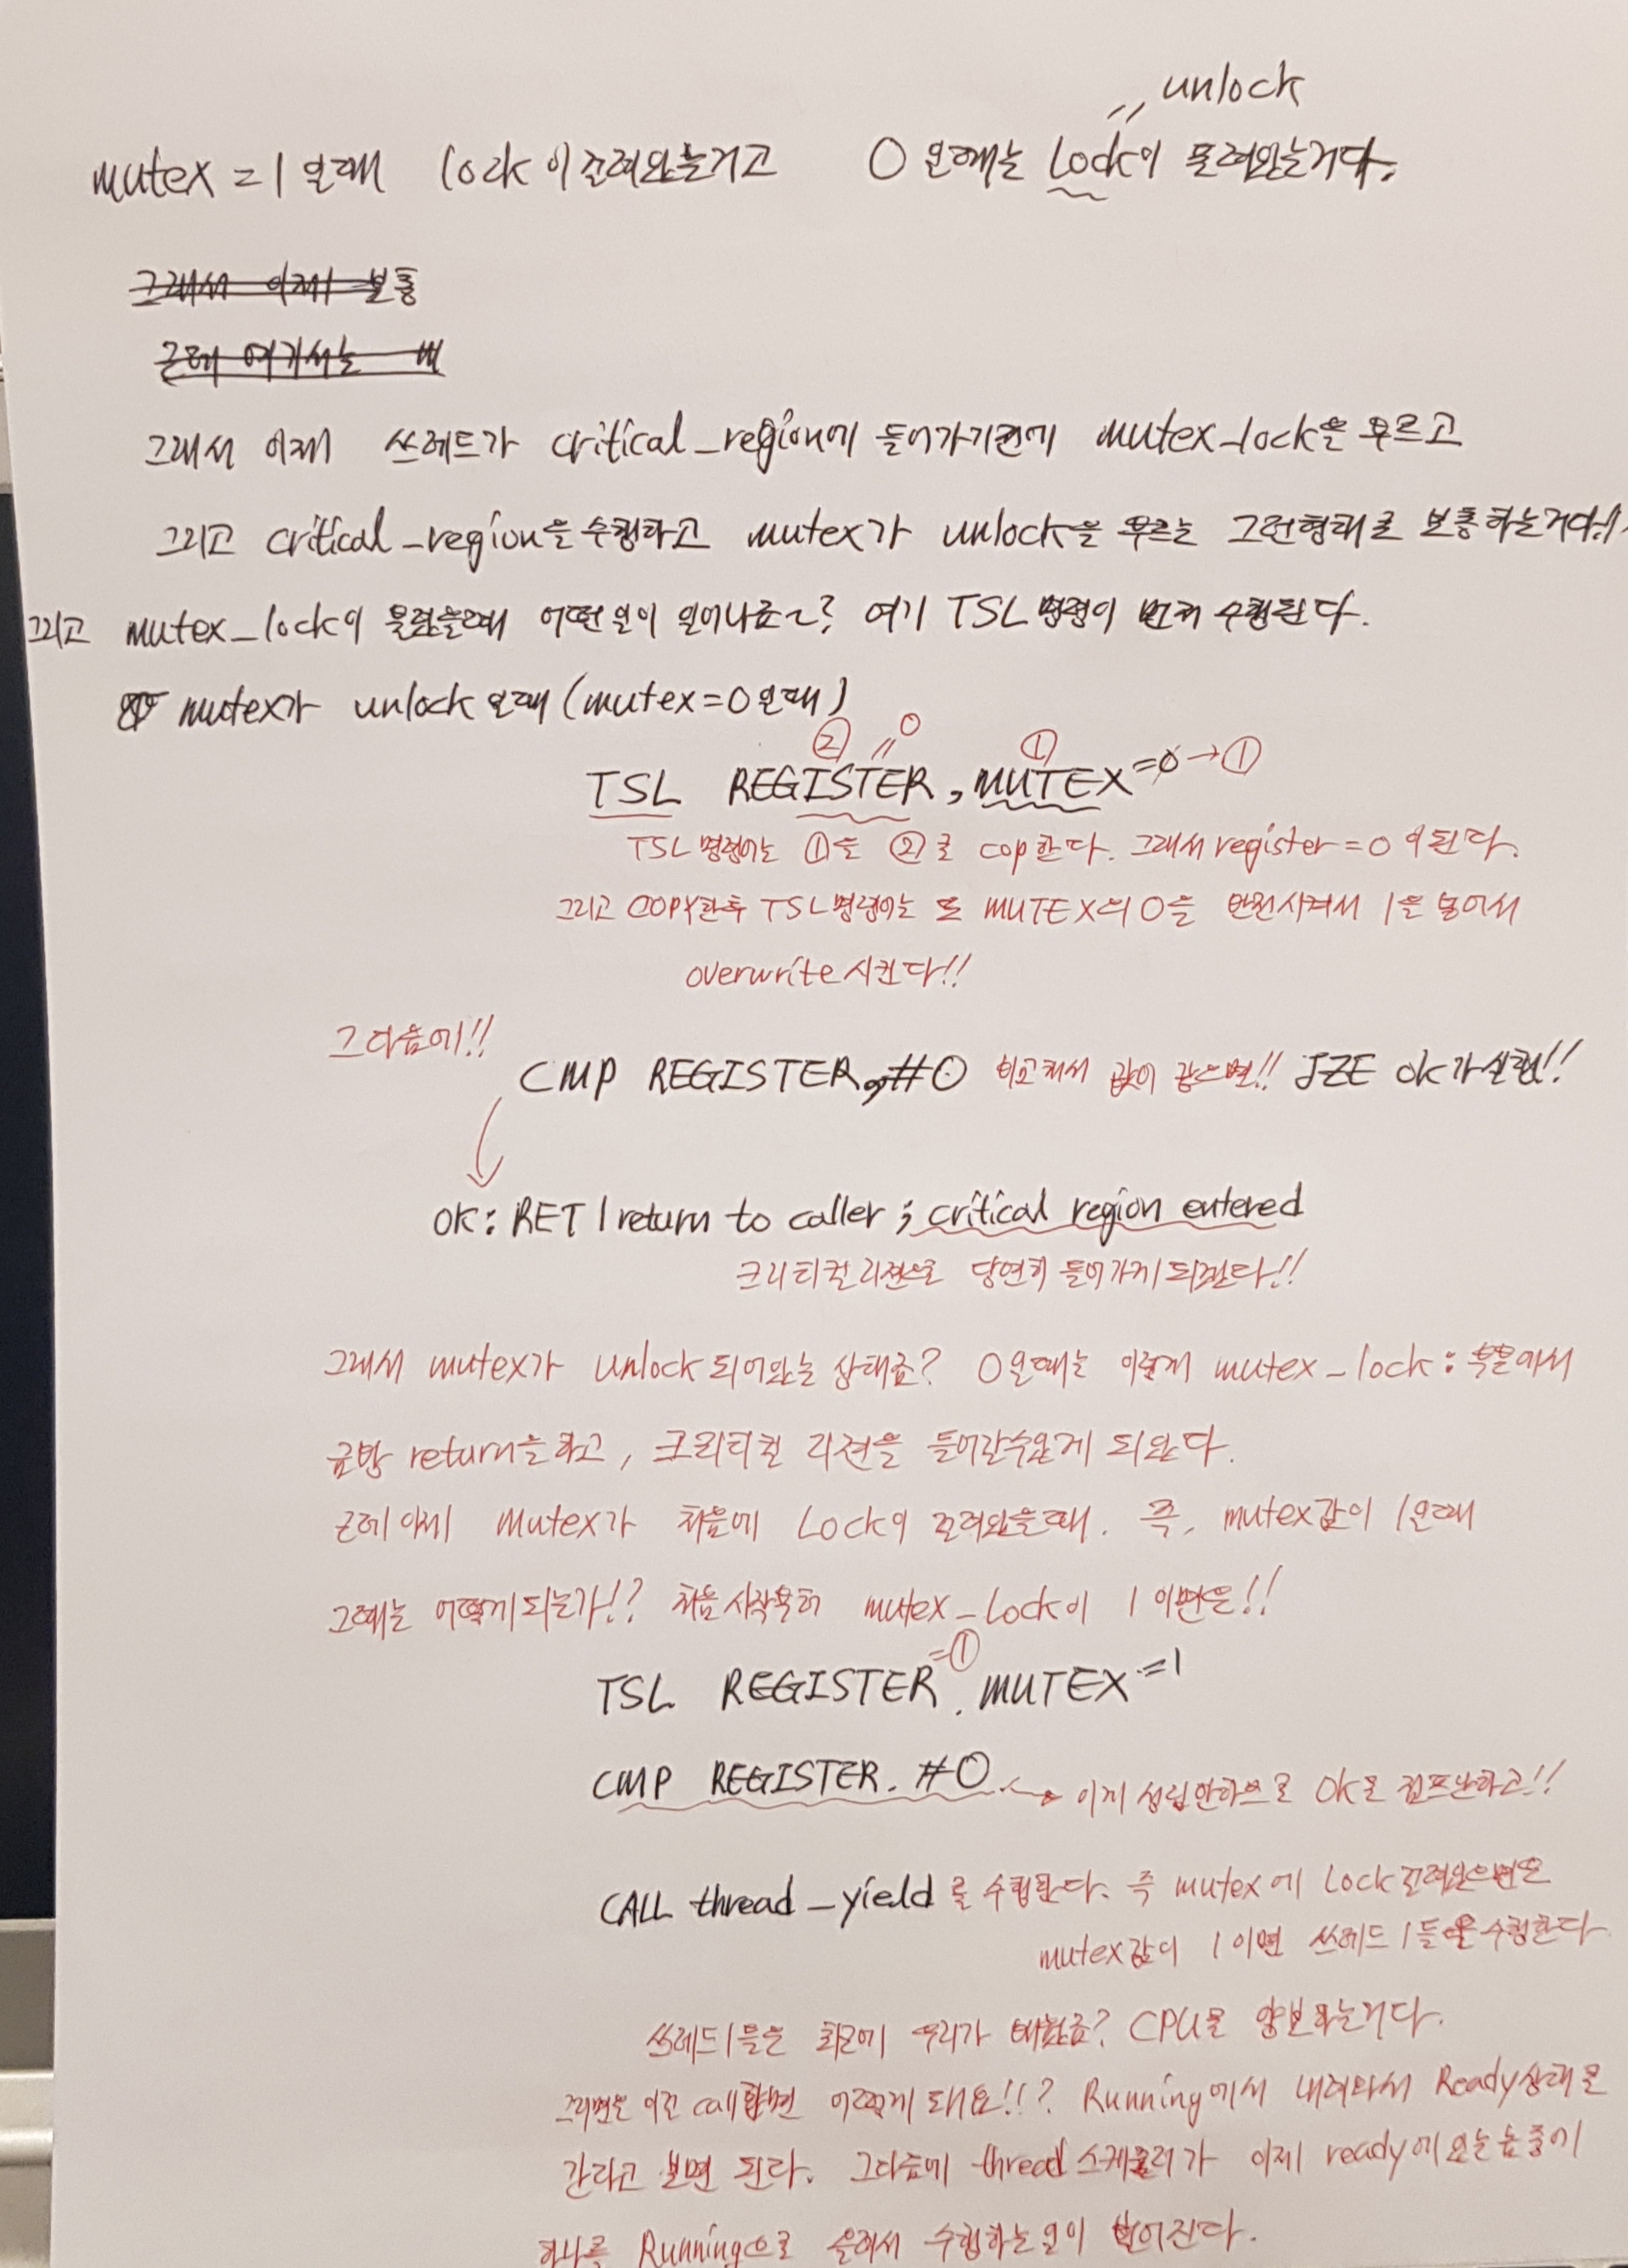 unlock
mutex = 1 일때 lock이 걸려있는거고 0 일때는 Lock이 풀려있는거다.
그래서 이제 보통
근데 여기서는
그래서 이제 쓰레드가 critical_region에 들어가기전에 mutex_lock을 부르고
그리고 critical_region을 수행하고 mutex가 unlock을 부르는 그런형태로 보통하는거다!!
그리고 mutex_lock이 불렸을때 어떤일이 일어나죠~? 여기 TSL 명령이 먼저 수행된다.
mutex가 unlock일때 (mutex=0일때)
② 〃 0 ①
TSL REGISTER, MUTEX =0 → ①
TSL 명령어는 ①을 ②로 cop한다. 그래서 register = 0 이된다.
그리고 COPY한후 TSL명령어는 또 MUTEX의 0을 반전시켜서 1을 넣어서
overwrite시킨다!!
그다음에!!
CMP REGISTER, #0 비교해서 값이 같으면!! JZE ok가실행!!
OK: RET | return to caller ; critical region entered
크리티컬리전으로 당연히 들어가게되겠다!!
그래서 mutex가 unlock되어있는 상태죠? 0일때는 이렇게 mutex_lock: 부분에서
금방 return을하고, 크리티컬 리전을 들어갈수있게 되있다.
근데이제 mutex가 처음에 Lock이 걸려있을때. 즉, mutex값이 1일때
그때는 어떻게되는가!? 처음시작부터 mutex_Lock이 1 이면은!!
=①
TSL REGISTER. MUTEX =1
CMP REGISTER. #0 이게 성립안하므로 OK로 점프안하고!!
CALL thread_yield를 수행된다. 즉 mutex에 Lock걸려있으면은
mutex값이 1 이면 쓰레드 1들을수행한다
쓰레드1들은 최근에 우리가 배웠죠? CPU를 양보하는거다.
그러면은 이걸 call하면 어떻게 돼요!!? Running에서 내려와서 Ready상태로
간다고 보면 된다. 그다음에 thread스케줄러가 이제 ready에있는놈중에
하나를 Running으로 올려서 수행하는일이 벌어진다.